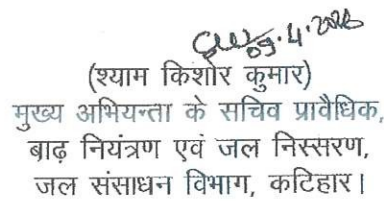 09.4.2026
(श्याम किशोर कुमार)
मुख्य अभियन्ता के सचिव प्रावैधिक,
बाढ़ नियंत्रण एवं जल निस्सरण,
जल संसाधन विभाग, कटिहार।